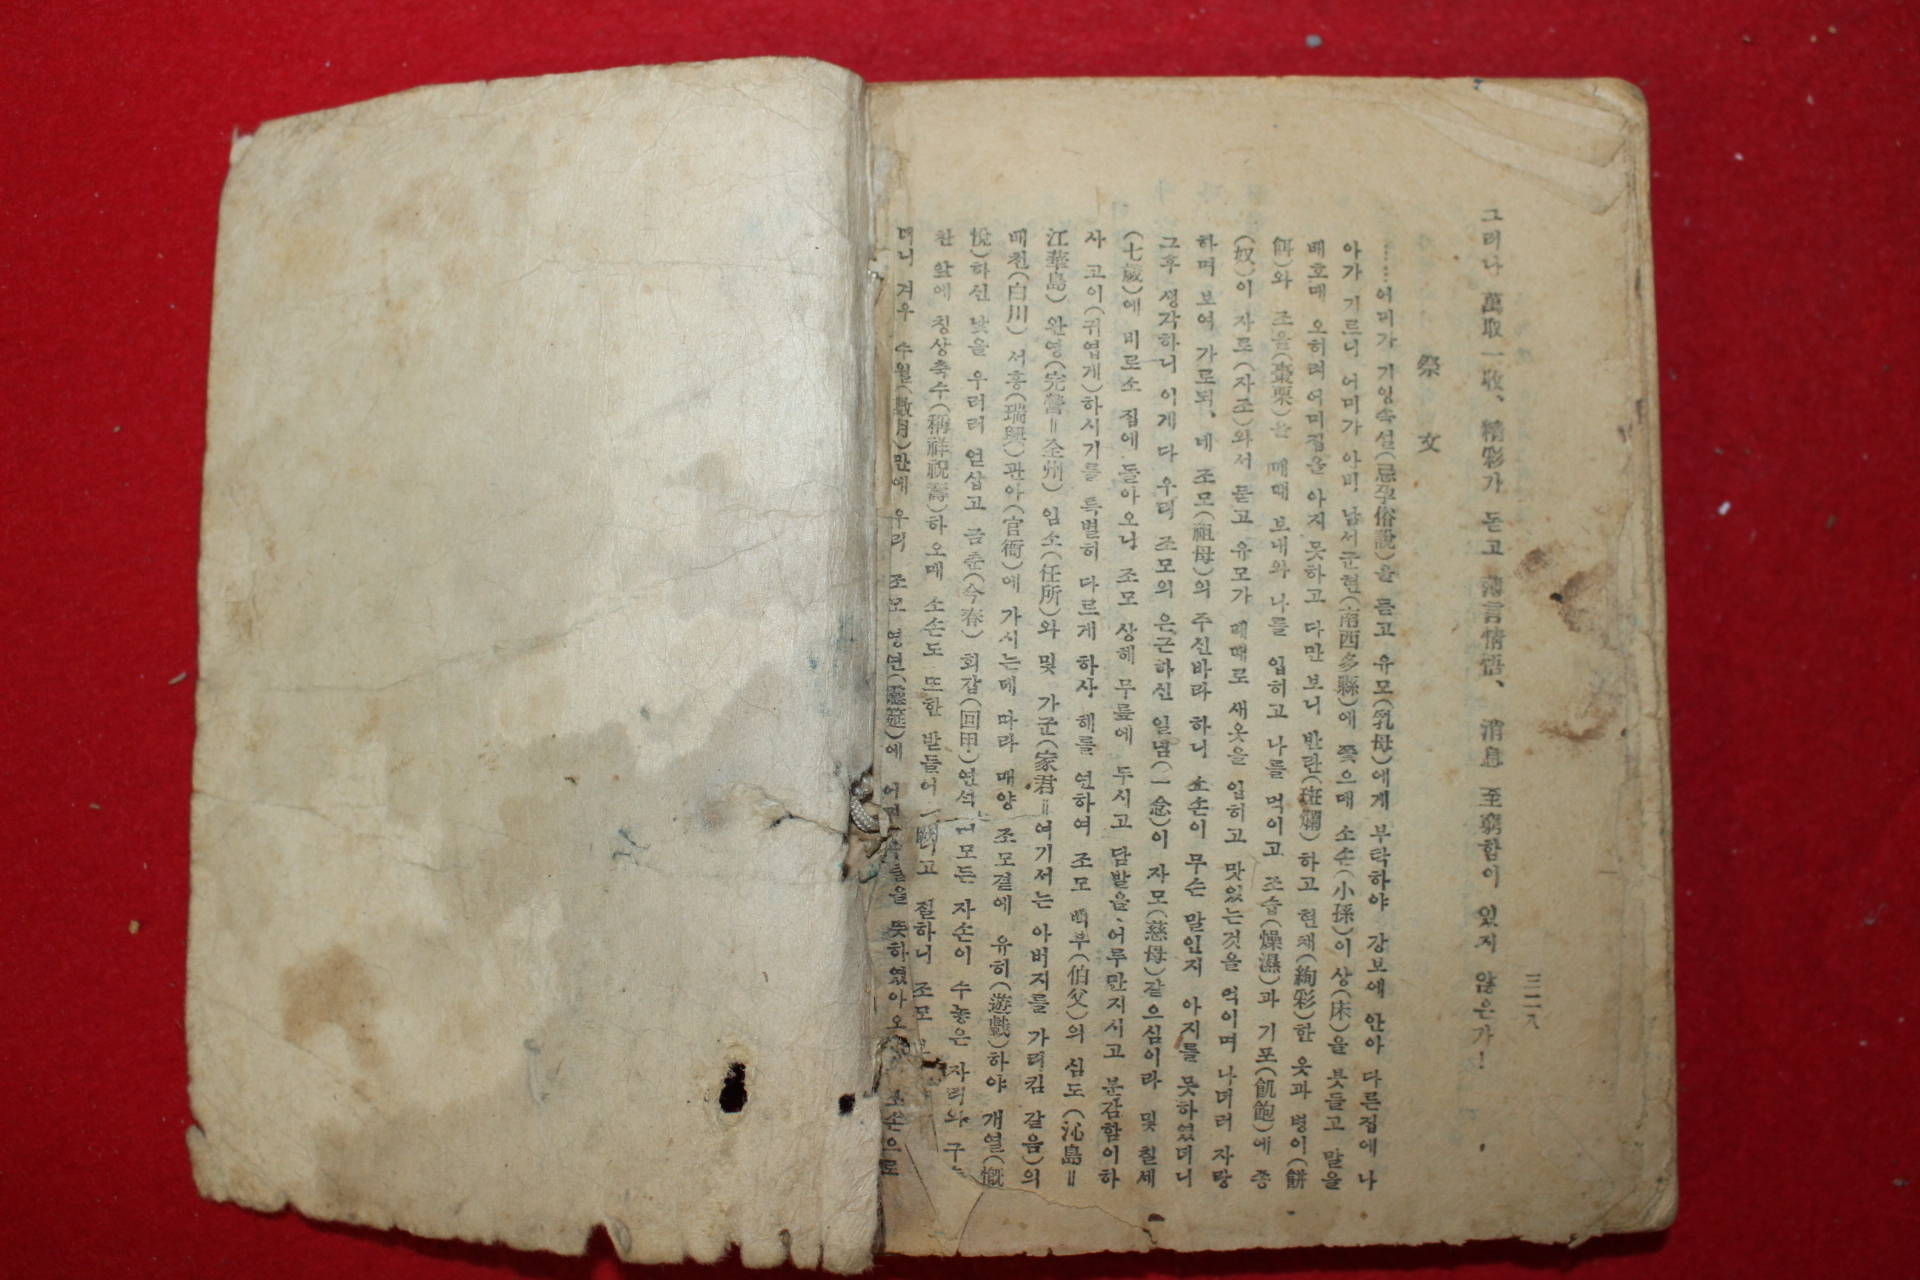 그러나 萬取一收、精彩가 돋고 薄言情語、消息 至窮함이 있지 않은가!
三一八
祭文
……어미가 기잉속설(忌孕俗說)을 듣고 유모(乳母)에게 부탁하야 강보에 안아 다른집에 나
아가 기르니 어미가 아비 남서군현(南西多縣)에 쫓으매 소손(小孫)이 상(床)을 붓들고 말을
배호매 오히려 어미집을 아지 못하고 다만 보니 반란(斑斕)하고 현채(絢彩)한 옷과 병이(餠
餌)와 조율(棗栗)을 매매 보내와 나를 입히고 나를 먹이고 조습(燥濕)과 기포(飢飽)에 종
(奴)이 자로(자조)와서 묻고 유모가 매매로 새옷을 입히고 맛있는것을 먹이며 나더러 자랑
하며 보여 가로되、네 조모(祖母)의 주신바라 하니 소손이 무슨 말인지 아지를 못하였더니
그후 생각하니 이게 다 우리 조모의 은근하신 일념(一念)이 자모(慈母)같으심이라 및 칠세
(七歲)에 비로소 집에 돌아오나 조모 상해 무릎에 두시고 담발을 어루만지시고 분감함이하
사 고이(귀엽게)하시기를 특별히 다르게 하사 해를 연하여 조모 백부(伯父)의 심도(沁島=
江華島) 완영(完營=全州) 임소(任所)와 및 가군(家君=여기서는 아버지를 가리킴 같음)의
배천(白川) 서흥(瑞興)관아(官衙)에 가시는데 따라 매양 조모곁에 유히(遊戱)하야 개열(慨
悅)하신 낯을 우러러 얻삽고 금춘(今春) 회갑(回甲)연석 모든 자손이 수놓은 자리와
찬 앞에 칭상축수(稱祥祝壽)하오매 소손도 또한 받들어 고 절하니 조모
더니 겨우 수월(數月)만에 우리 조모 영연(靈筵)에 을 뜻하였아오 소손으로